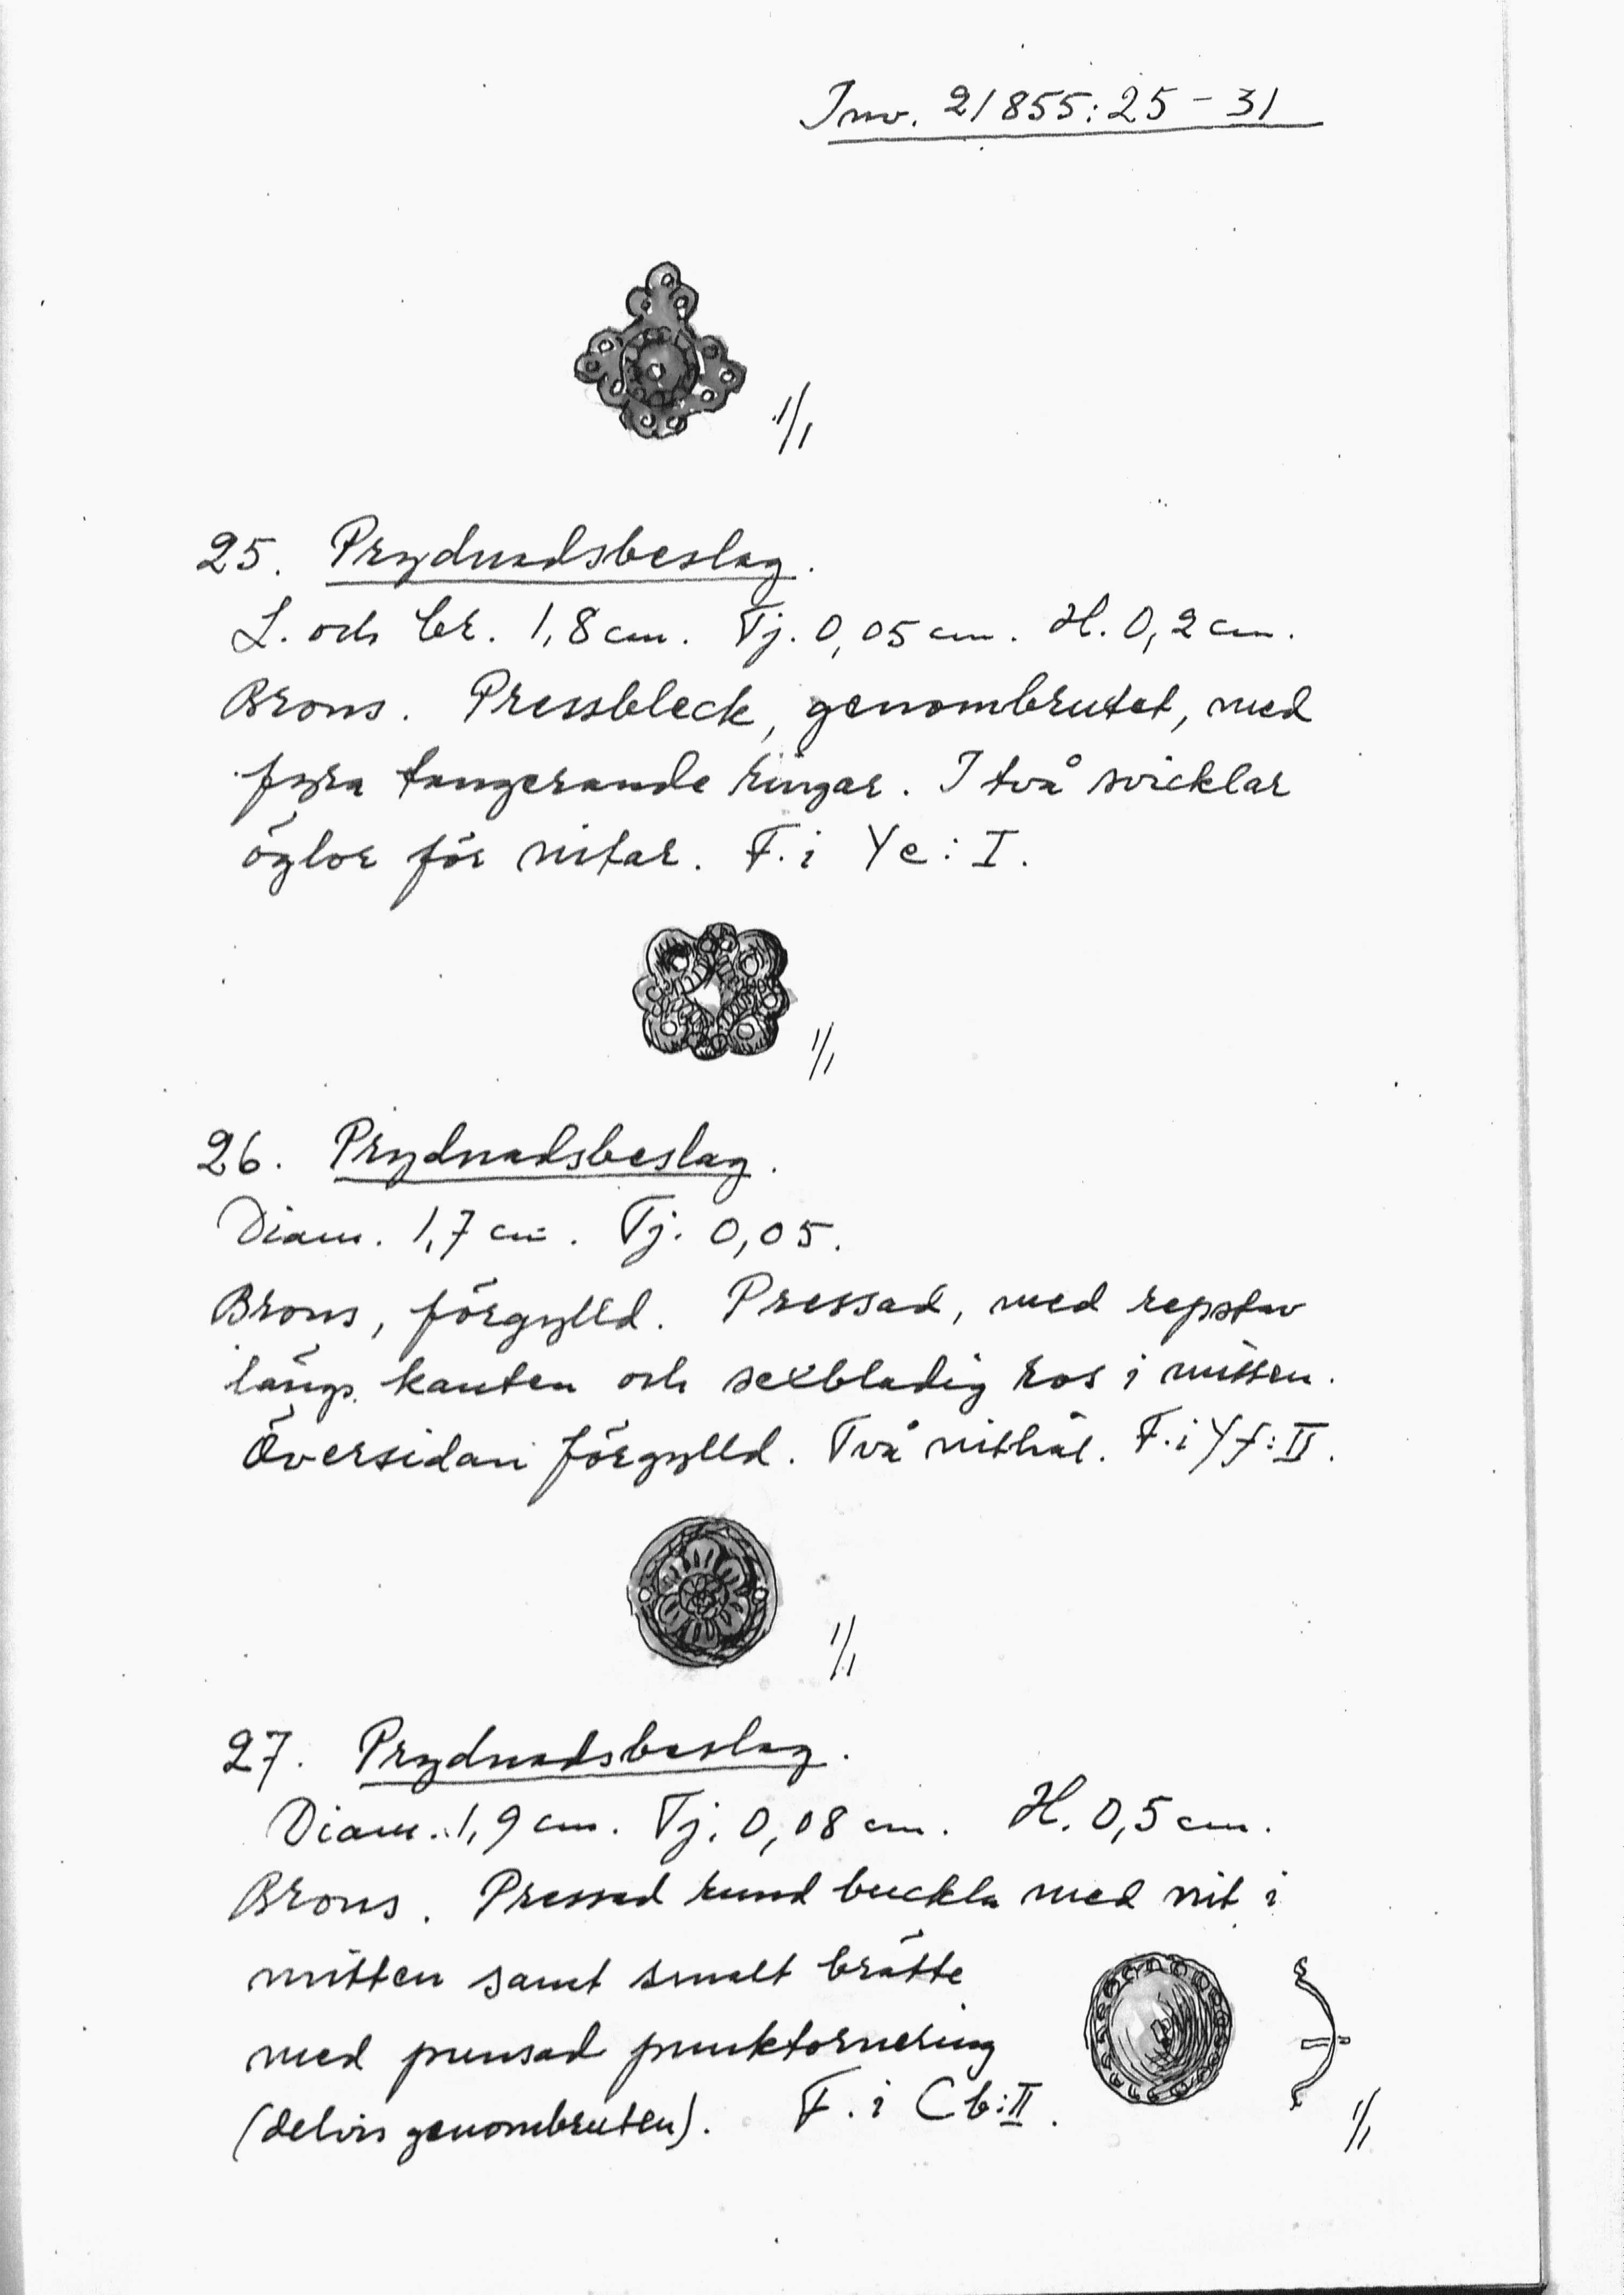 Inv. 21855:25-31
1/1
25. Prydnadsbeslag.
L. och br. 1,8 cm. Tj. 0,05 cm. H. 0,2 cm.
Brons. Pressbleck, genombrutet, med
fyra tangerande ringar. I två svicklar
öglor för nitar. F. i Ye: I.
1/1
26. Prydnadsbeslag.
Diam. 1,7 cm. Tj. 0,05.
Brons, förgylld. Pressad, med repstav
längs kanten och sexbladig ros i mitten.
Översidan förgylld. Två nithål. F. i Yf: II.
1/1
27. Prydnadsbeslag.
Diam. 1,9 cm. Tj. 0,08 cm. H. 0,5 cm.
Brons. Pressad rund buckla med nit i
mitten samt smalt brätte
med punsad punktornering
(delvis genombruten). F. i Cb: II.
1/1